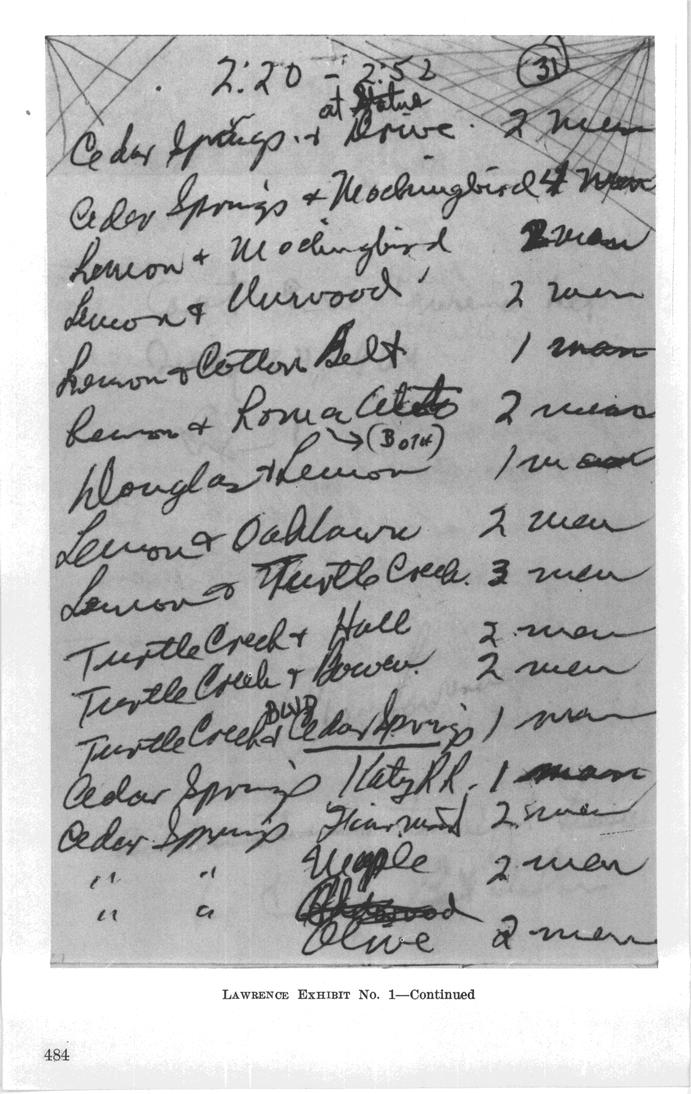 2:20 - 2:52 31
at Statue
Cedar Springs & Drive. 2 men
Cedar Springs & Mockingbird 4 men
Lemon & Mockingbird 2 man
Lemon & Inwood 2 men
Lemon & Cotton Belt 1 man
Lemon & Loma Alto 2 men
(Both)
Douglas & Lemon 1 man
Lemon & Oaklawn 2 men
Lemon & Turtle Creek. 3 men
Turtle Creek & Hall 2 men
Turtle Creek & Bowen 2 men
Blvd
Turtle Creek & Cedar Springs 1 man
Cedar Springs Katy RR. 1 man
Cedar Springs Fairmount 2 men
" " Maple 2 men
" "
Olive 2 men
LAWRENCE EXHIBIT No. 1—Continued
484